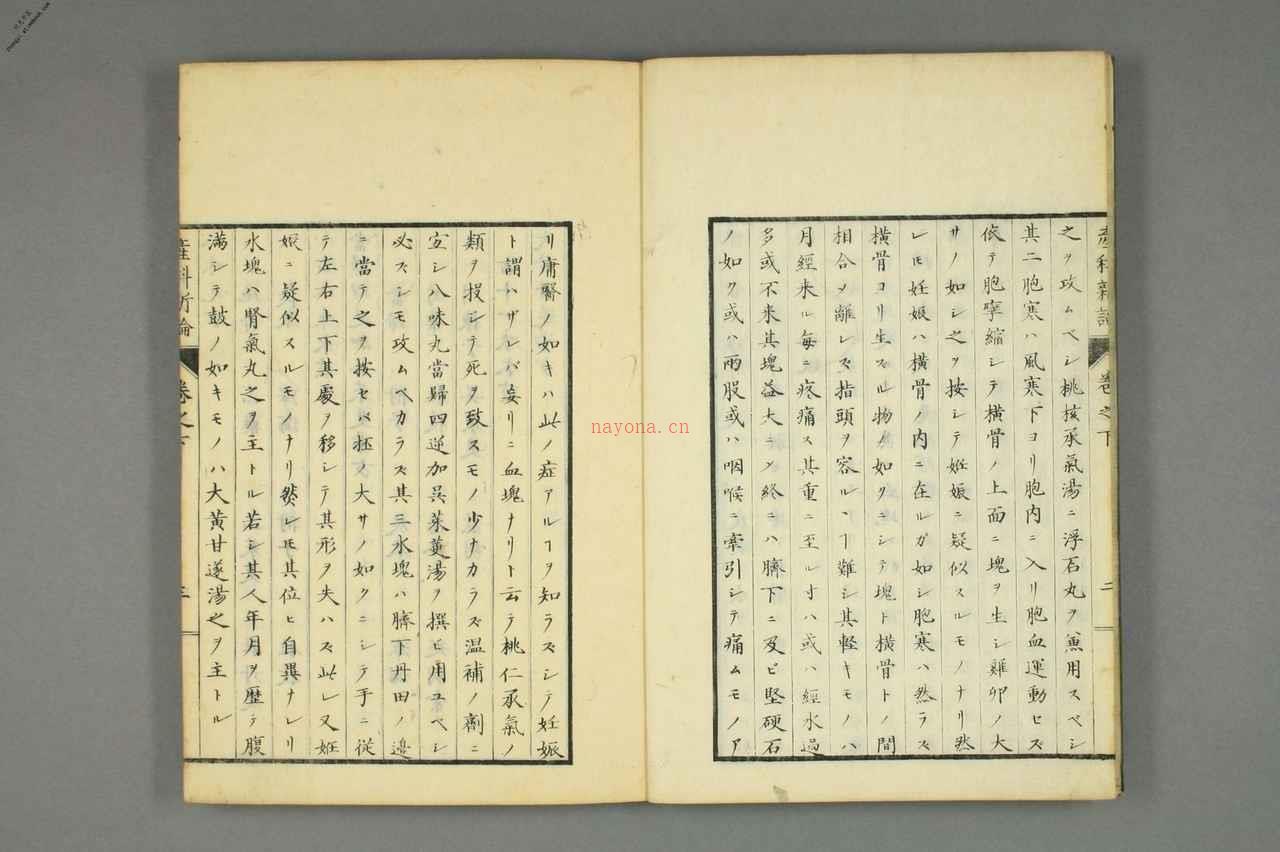 產科新論
卷之下
二
之ヲ攻ムベシ桃核承氣湯ニ浮石丸ヲ兼用スベシ
其二胞寒ハ風寒下ヨリ胞内ニ入リ胞血運動セズ
依テ胞攣縮シテ横骨ノ上面ニ塊ヲ生シ雞卵ノ大
サノ如シ之ヲ按シテ姙娠ニ疑似スルモノナリ然
レㇳモ妊娠ハ横骨ノ内ニ在ルガ如シ胞寒ハ然ラズ
横骨ヨリ生ズル物ノ如クニシテ塊ト横骨トノ間
相合メ離レズ指頭ヲ容ルヽヿ難シ其軽キモノハ
月經来ル毎ニ疼痛ス其重ニ至ル寸ハ或ハ經水過
多或不来其塊益大ニメ終ニハ臍下ニ及ビ堅硬石
ノ如ク或ハ両股或ハ咽喉ニ牽引シテ痛ムモノア
リ庸醫ノ如キハ此ノ症アルヿヲ知ラズシテ妊娠
ト謂ハザレバ妄リニ血塊ナリト云テ桃仁承氣ノ
類ヲ投シテ死ヲ致スモノ少ナカラズ温補ノ劑ニ
宜シ八味丸當歸四逆加呉茱萸湯ヲ撰ヒ用ユベシ
必ズシモ攻ムベカラズ其三水塊ハ臍下丹田ノ邉
ニ當テ之ヲ按セバ抔ノ大サノ如クニシテ手ニ從
テ左右上下其處ヲ移シテ其形ヲ失ハズ此レ又姙
娠ニ疑似スルモノナリ然レㇳモ其位ヒ自異ナレリ
水塊ハ腎氣丸之ヲ主トル若シ其人年月ヲ歴テ腹
滿シテ鼓ノ如キモノハ大黄甘遂湯之ヲ主トル
産科新論
卷之下
三
nayona.cn